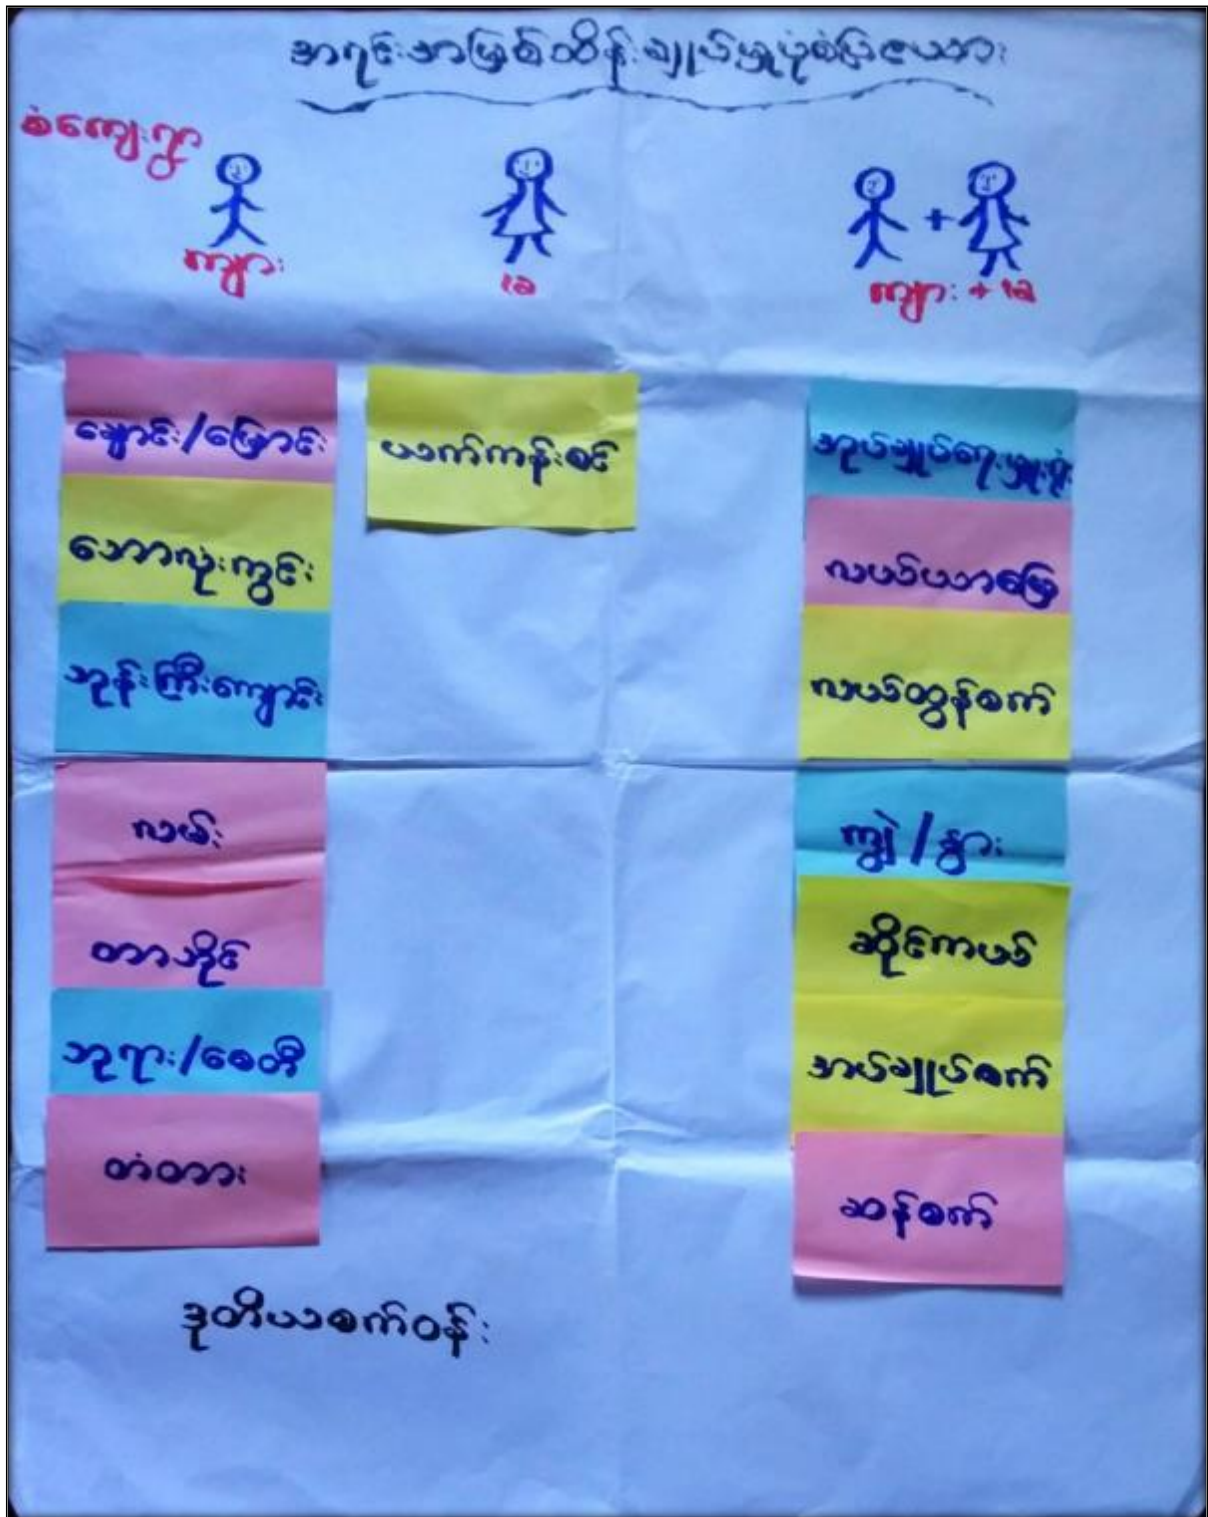 အရင်းအမြစ်ထိန်းချုပ်မှုပုံစံပြဇယား
စံကျေးရွာ
ကျား
မ
ကျား + မ
ချောင်း/မြောင်း
ဘောလုံးကွင်း
ဘုန်းကြီးကျောင်း
လမ်း
တာဘိုင်
ဘုရား/စေတီ
တံတား
ယက်ကန်းစင်
အုပ်ချုပ်ရေးမှူးရုံး
လယ်ယာမြေ
လယ်ထွန်စက်
ကျွဲ/နွား
ဆိုင်ကယ်
အပ်ချုပ်စက်
ဆန်စက်
ဒုတိယစက်ဝန်း